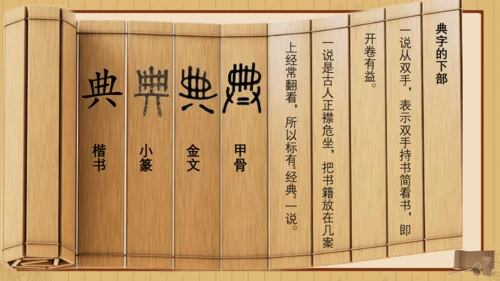 典字的下部
一说从双手，表示双手持书简看书，即
开卷有益。
一说是古人正襟危坐，把书籍放在几案
上经常翻看，所以标有“经典”一说。
典
甲骨
典
金文
典
小篆
典
楷书